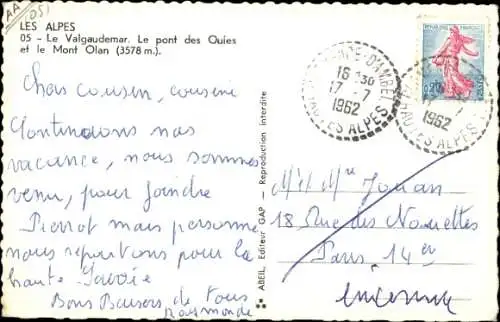 AA
(05)
LES ALPES
05 - Le Valgaudemar. Le pont des Oules
et le Mont Olan (3578 m.).
Chers cousin, cousine
Continuons nos
vacance, nous sommes
venu, pour joindre
Pierrot mais personne
nous repartons pour la
haute Savoie
Bons Baisers de tous
Raymonde
ABEIL, Editeur GAP - Reproduction interdite
16 H30
17 - 7
1962
HAUTES ALPES
0,20
17 - 7
1962
HAUTES ALPES
M et Me Jouan
18 Rue des
Paris. 14 er